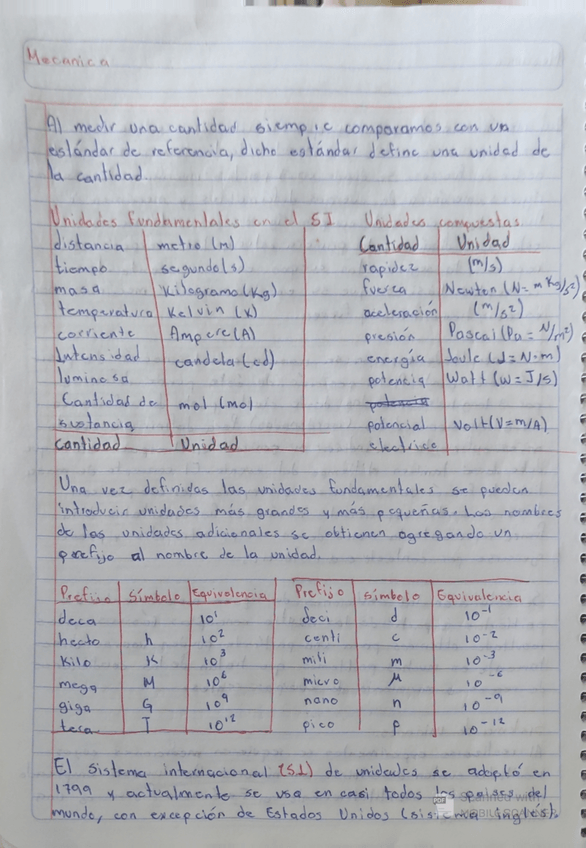 Mecanica
Al medir una cantidad siempre comparamos con un
estándar de referencia, dicho estándar define una unidad de
la cantidad.
Unidades fundamentales en el SI
distancia metro (m)
tiempo segundo (s)
masa Kilogramo (Kg)
temperatura Kelvin (K)
corriente Ampere (A)
Intensidad candela (cd)
luminosa
Cantidad de mol (mol)
sustancia
Cantidad Unidad
Unidades compuestas
Cantidad Unidad
rapidez (m/s)
fuerza Newton (N= m Kg/s²)
aceleración (m/s²)
presión Pascal (Pa = N/m²)
energía Joule (J=N·m)
potencia Watt (W=J/s)
potencia
potencial Volt (V=m/A)
electrico
Una vez definidas las unidades fundamentales se pueden
introducir unidades más grandes y más pequeñas. Los nombres
de las unidades adicionales se obtienen agregando un
prefijo al nombre de la unidad.
Prefijo Símbolo Equivalencia
deca 10¹
hecto h 10²
Kilo K 10³
mega M 10⁶
giga G 10⁹
tera T 10¹²
Prefijo símbolo Equivalencia
deci d 10⁻¹
centi c 10⁻²
mili m 10⁻³
micro μ 10⁻⁶
nano n 10⁻⁹
pico p 10⁻¹²
El sistema internacional (SI) de unidades se adoptó en
1799 y actualmente se usa en casi todos los paises del
mundo, con excepción de Estados Unidos (sistema inglés).
Scanned with